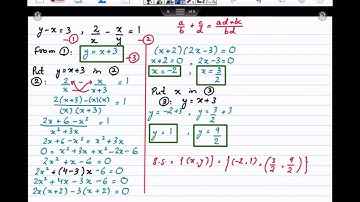 y-x=3 , 2/x - x/y = 1
a/b + c/d = ad+bc/bd
from ① : y = x+3 —③
Put y = x+3 in ②
② : 2/x - x/x+3 = 1
2(x+3)-(x)(x) / (x)(x+3) = 1
2x+6-x² / x²+3x = 1
2x+6-x² = x²+3x
0 = x²+3x+x²-2x-6
2x²+x-6=0
2x²+(4-3)x-6=0
2x²+4x-3x-6=0
2x(x+2)-3(x+2)=0
(x+2)(2x-3)=0
x+2=0 , 2x-3=0
x=-2 , x=3/2
Put x in ③
③ : y = x+3
y=-2+3 , y=3/2+3
y=1 , y=9/2
S.S = {(x,y)} = {(-2,1), (3/2, 9/2)}